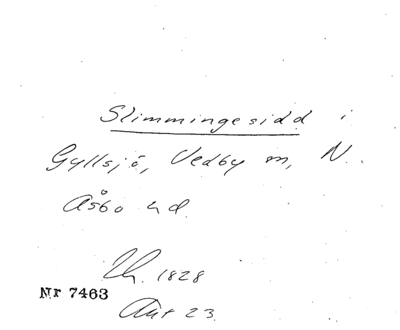 Slimmingesidd i
Gyllsjö, Vedby m, N.
Åsbo hd.
Uh. 1828
Nr 7463
Aut 23